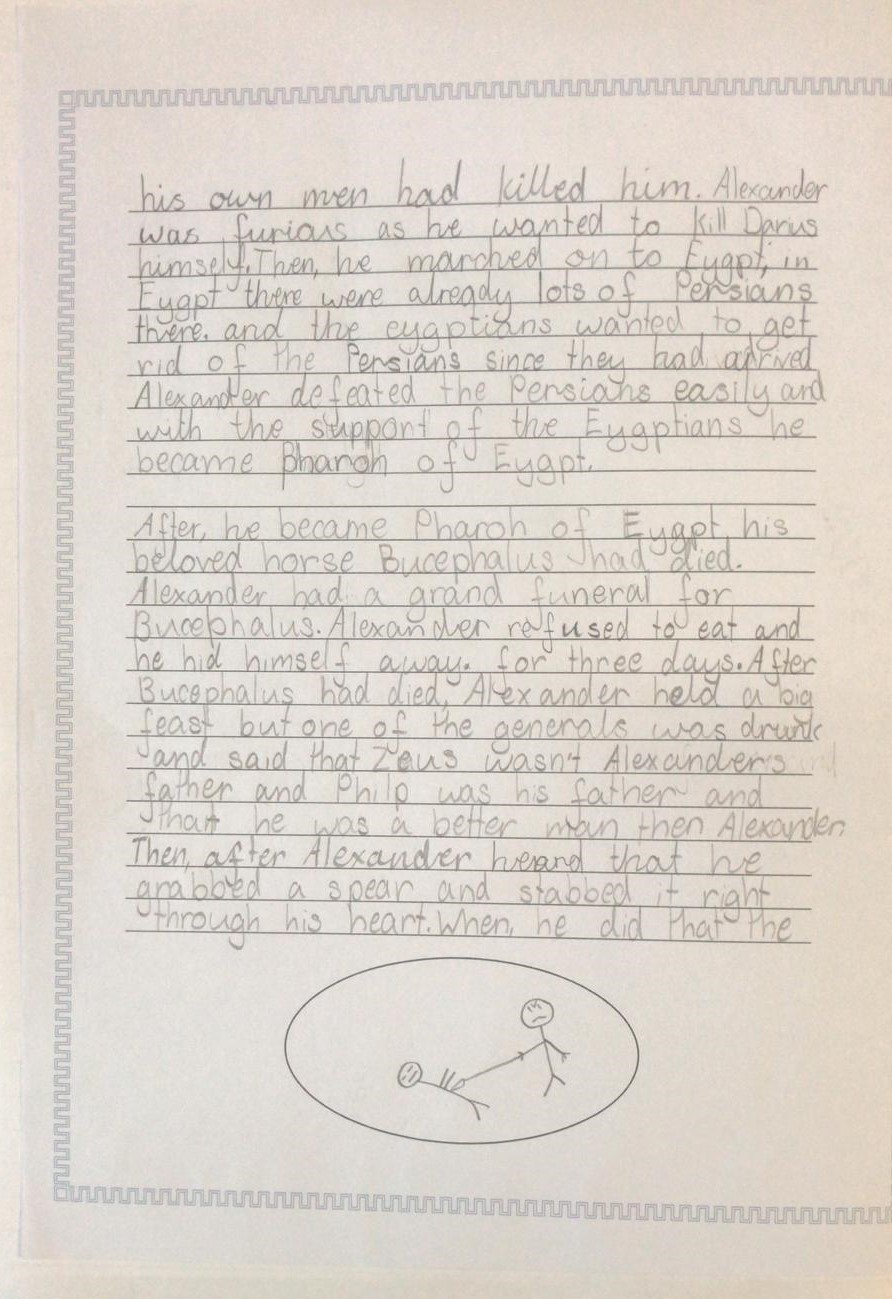 his own men had killed him. Alexander
was furious as he wanted to kill Darius
himself. Then, he marched on to Eygpt, in
Eygpt there were already lots of Persians
there. and the eygptians wanted to get
rid of the Persians since they had arrived
Alexander defeated the Persians easily and
with the support of the Eygptians he
became pharoh of Eygpt.
After, he became Pharoh of Eygpt his
beloved horse Bucephalus had died.
Alexander had a grand funeral for
Bucephalus. Alexander refused to eat and
he hid himself away. for three days. After
Bucephalus had died, Alexander held a big
feast but one of the generals was drunk
and said that Zeus wasn't Alexander's
father and Philp was his father and
that he was a better man then Alexander.
Then, after Alexander heard that he
grabbed a spear and stabbed it right
through his heart. When, he did that the